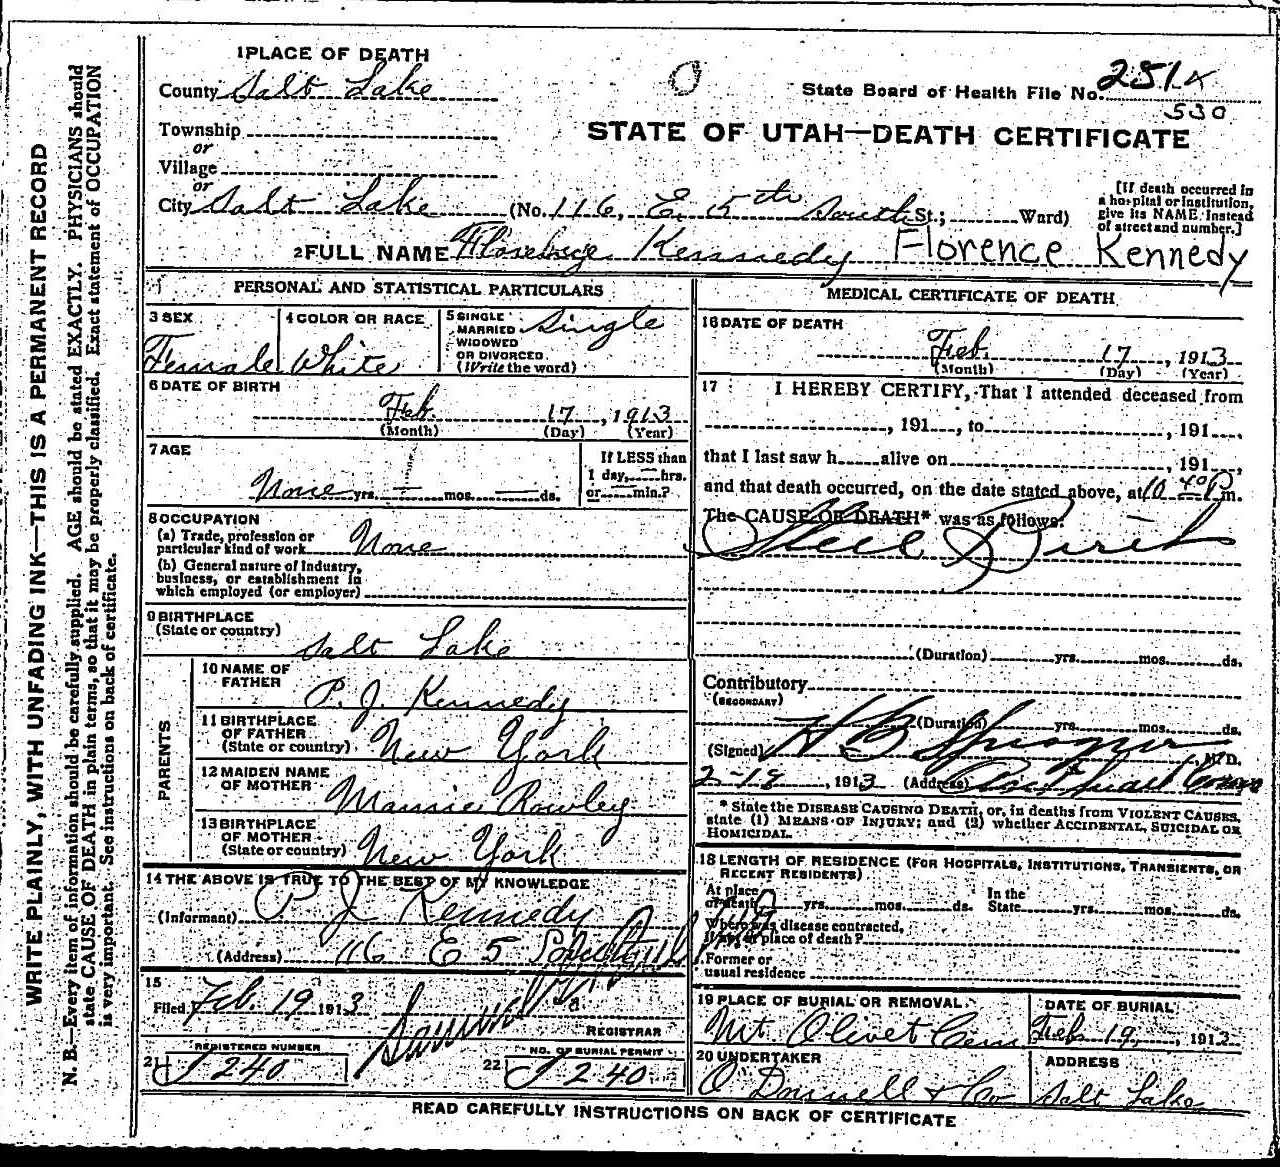 WRITE PLAINLY, WITH UNFADING INK—THIS IS A PERMANENT RECORD
N. B.—Every item of information should be carefully supplied. AGE should be stated EXACTLY. PHYSICIANS should
state CAUSE OF DEATH in plain terms, so that it may be properly classified. Exact statement of OCCUPATION
is very important. See instructions on back of certificate.
1 PLACE OF DEATH
County Salt Lake
State Board of Health File No. 251
530
Township
or
STATE OF UTAH—DEATH CERTIFICATE
Village
or
City Salt Lake (No. 116, E. 5th South St.; Ward)
[If death occurred in
a hospital or institution,
give its NAME instead
of street and number.]
2 FULL NAME Kennedy Florence Kennedy
PERSONAL AND STATISTICAL PARTICULARS
3 SEX
Female
4 COLOR OR RACE
White
5 SINGLE
MARRIED
WIDOWED
OR DIVORCED
(Write the word)
Single
6 DATE OF BIRTH
Feb. 17, 1913
(Month) (Day) (Year)
7 AGE
None yrs. — mos. — ds.
If LESS than
1 day, — hrs.
or — min.?
8 OCCUPATION
(a) Trade, profession or
particular kind of work None
(b) General nature of Industry,
business, or establishment in
which employed (or employer)
9 BIRTHPLACE
(State or country)
Salt Lake
PARENTS
10 NAME OF
FATHER
P. J. Kennedy
11 BIRTHPLACE
OF FATHER
(State or country)
New York
12 MAIDEN NAME
OF MOTHER
Mamie Rowley
13 BIRTHPLACE
OF MOTHER
(State or country)
New York
14 THE ABOVE IS TRUE TO THE BEST OF MY KNOWLEDGE
(Informant) P J Kennedy
(Address) 116 E 5 South
15
Filed Feb. 19 1913
REGISTRAR
REGISTERED NUMBER
21 J 240
NO. OF BURIAL PERMIT
22 J 240
MEDICAL CERTIFICATE OF DEATH
16 DATE OF DEATH
Feb. 17, 1913
(Month) (Day) (Year)
17 I HEREBY CERTIFY, That I attended deceased from
, 191 , to , 191 ,
that I last saw h alive on , 191 ,
and that death occurred, on the date stated above, at 10 40 P m.
The CAUSE OF DEATH* was as follows:
Still Birth
(Duration) yrs. mos. ds.
Contributory
(SECONDARY)
(Duration) yrs. mos. ds.
(Signed) H B Sprague M. D.
2-18, 1913 (Address)
* State the DISEASE CAUSING DEATH, or, in deaths from VIOLENT CAUSES,
state (1) MEANS OF INJURY; and (2) whether ACCIDENTAL, SUICIDAL OR
HOMICIDAL.
18 LENGTH OF RESIDENCE (FOR HOSPITALS, INSTITUTIONS, TRANSIENTS, OR
RECENT RESIDENTS)
At place
of death yrs. mos. ds.
In the
State yrs. mos. ds.
Where was disease contracted,
if not at place of death?
Former or
usual residence
19 PLACE OF BURIAL OR REMOVAL
Mt. Olivet Cem
DATE OF BURIAL
Feb 19, 1913
20 UNDERTAKER
O'Donnell & Co
ADDRESS
Salt Lake
READ CAREFULLY INSTRUCTIONS ON BACK OF CERTIFICATE